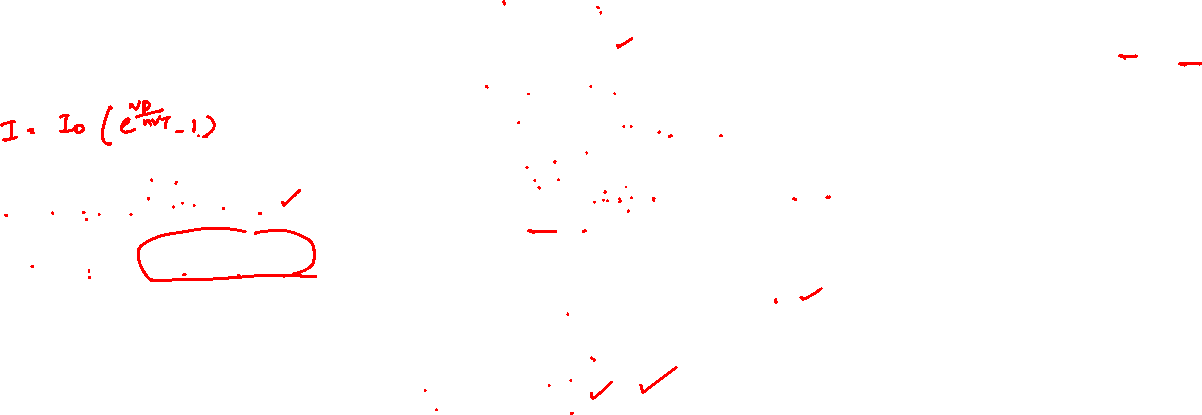 I = I₀ (e^{VD/ηVT} - 1)